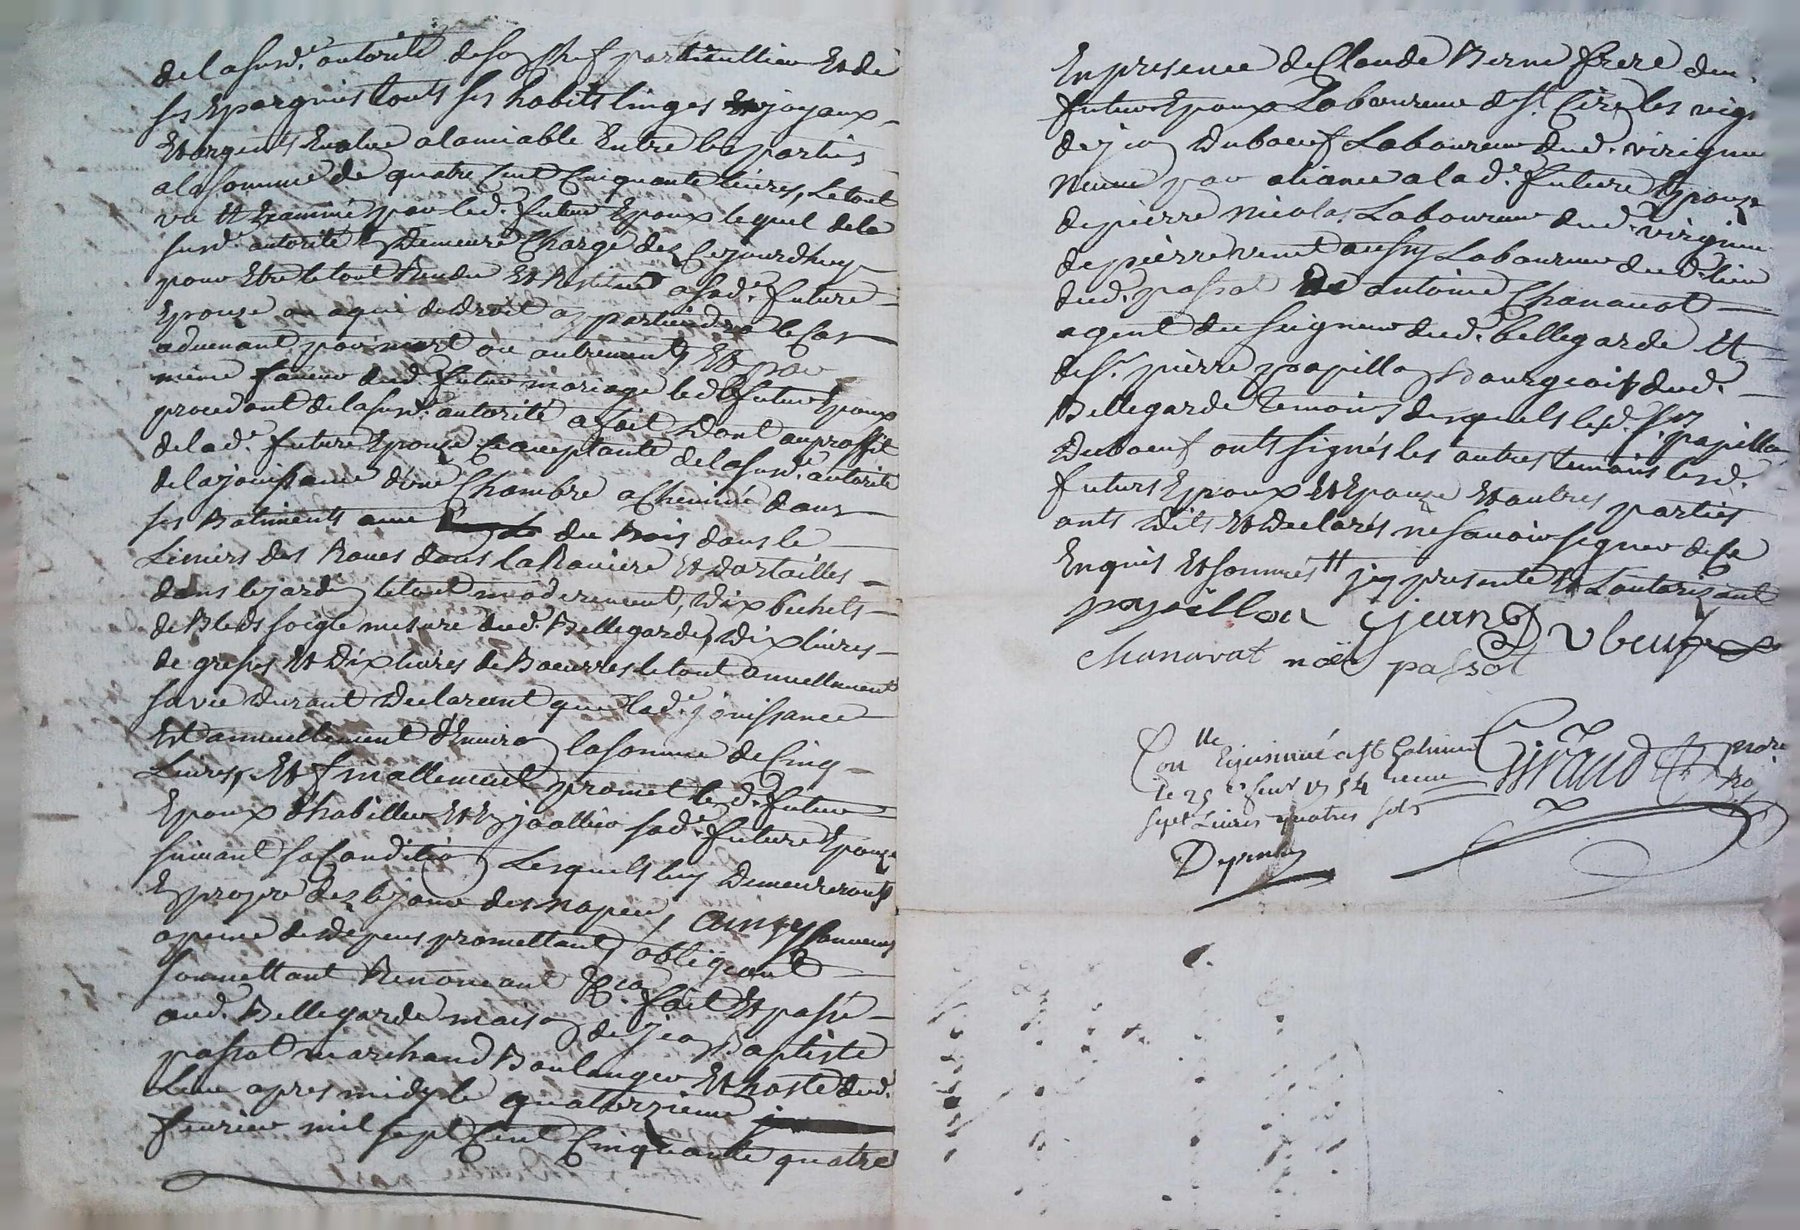 de la susd.e autorité de so chef particullier Et de
ses Epargnes touts ses habits linges Et joyaux
Et argents Evalue a lamiable Entre les parties
a la somme de quatre Cent Cinquante livres, Le tout
vu Et Examiné par led. futur Epoux lequel de la
susd.e autorité Demeure Chargé dez Cejourdhuy
pour Etre le tout Rendu Et Restitué a sad.e future
Epouse ou a qui de droit appartiendra le Cas
advenant par mort ou autrement, Et par
meme faveur dud. futur mariage led. futur Epoux
procedant de la susd.e autorité a fait Dont au proffit
de lad.e future Epouse Acceptante de la susd.e autorité
de la jouissance d'une Chambre a Cheminée dans
ses Batiments avec du Bois dans le
Limiers des Raves dans la Raviere Et dortailles
dans le jardin le tout moderement, Dix bichets
de Bled soigle mesure dud. Bellegarde, Dix livres
de greses Et Dix livres de Baeurres le tout annuellement
sa vie Durant Declarent que lad.e jouissance
Est annuellement d'Enviro la somme de Cinq
Livres, Et finallement promet led. futur
Epoux d'habiller Et Enjoallier sad.e future Epouse
suivant sa Condition Lesquels luy Demeureront
En propre dez le jour des nopces, Ainsy Convenu
a peine de Depens promettant, obligeant
soumettant Renonceant &ca. fait Et passé
aud. Bellegarde maison de jean Baptiste
passot marchand Boulanger Et hoste dud.
Lieu apres midy le quatorzieme
fevrier mil sept Cent Cinquante quatre
En presence de Claude Berne frere du
futur Epoux Laboureur de St. Cire les vig
de jean Duboeuf Laboureur dud. virigneu
neveu par aliance a lad.e future Epouse
de pierre nicolas Laboureur dud. virigneu
de pierre venet aussy Laboureur dud. lieu
dud. passot de antoine Chanavat
agent du seigneur dud. bellegarde Et
de Sr. pierre papillon Bourgeois dud.
Bellegarde temoins desquels led. Sr papillon
Duboeuf onts signés les autres temoins lesd.
futurs Epoux Et Epouse Et autres parties
onts Dits Et Declarés ne savoir signer de Ce
Enquis Et sommés jcy presente Et Lautorisant
papillon jean Dubeuf
Chanavat noël passot
Conlle Et jnsinué a St Galmier
le 25e fevr 1754 reçu
sept Livres quatres sols
Giraud nore Ro